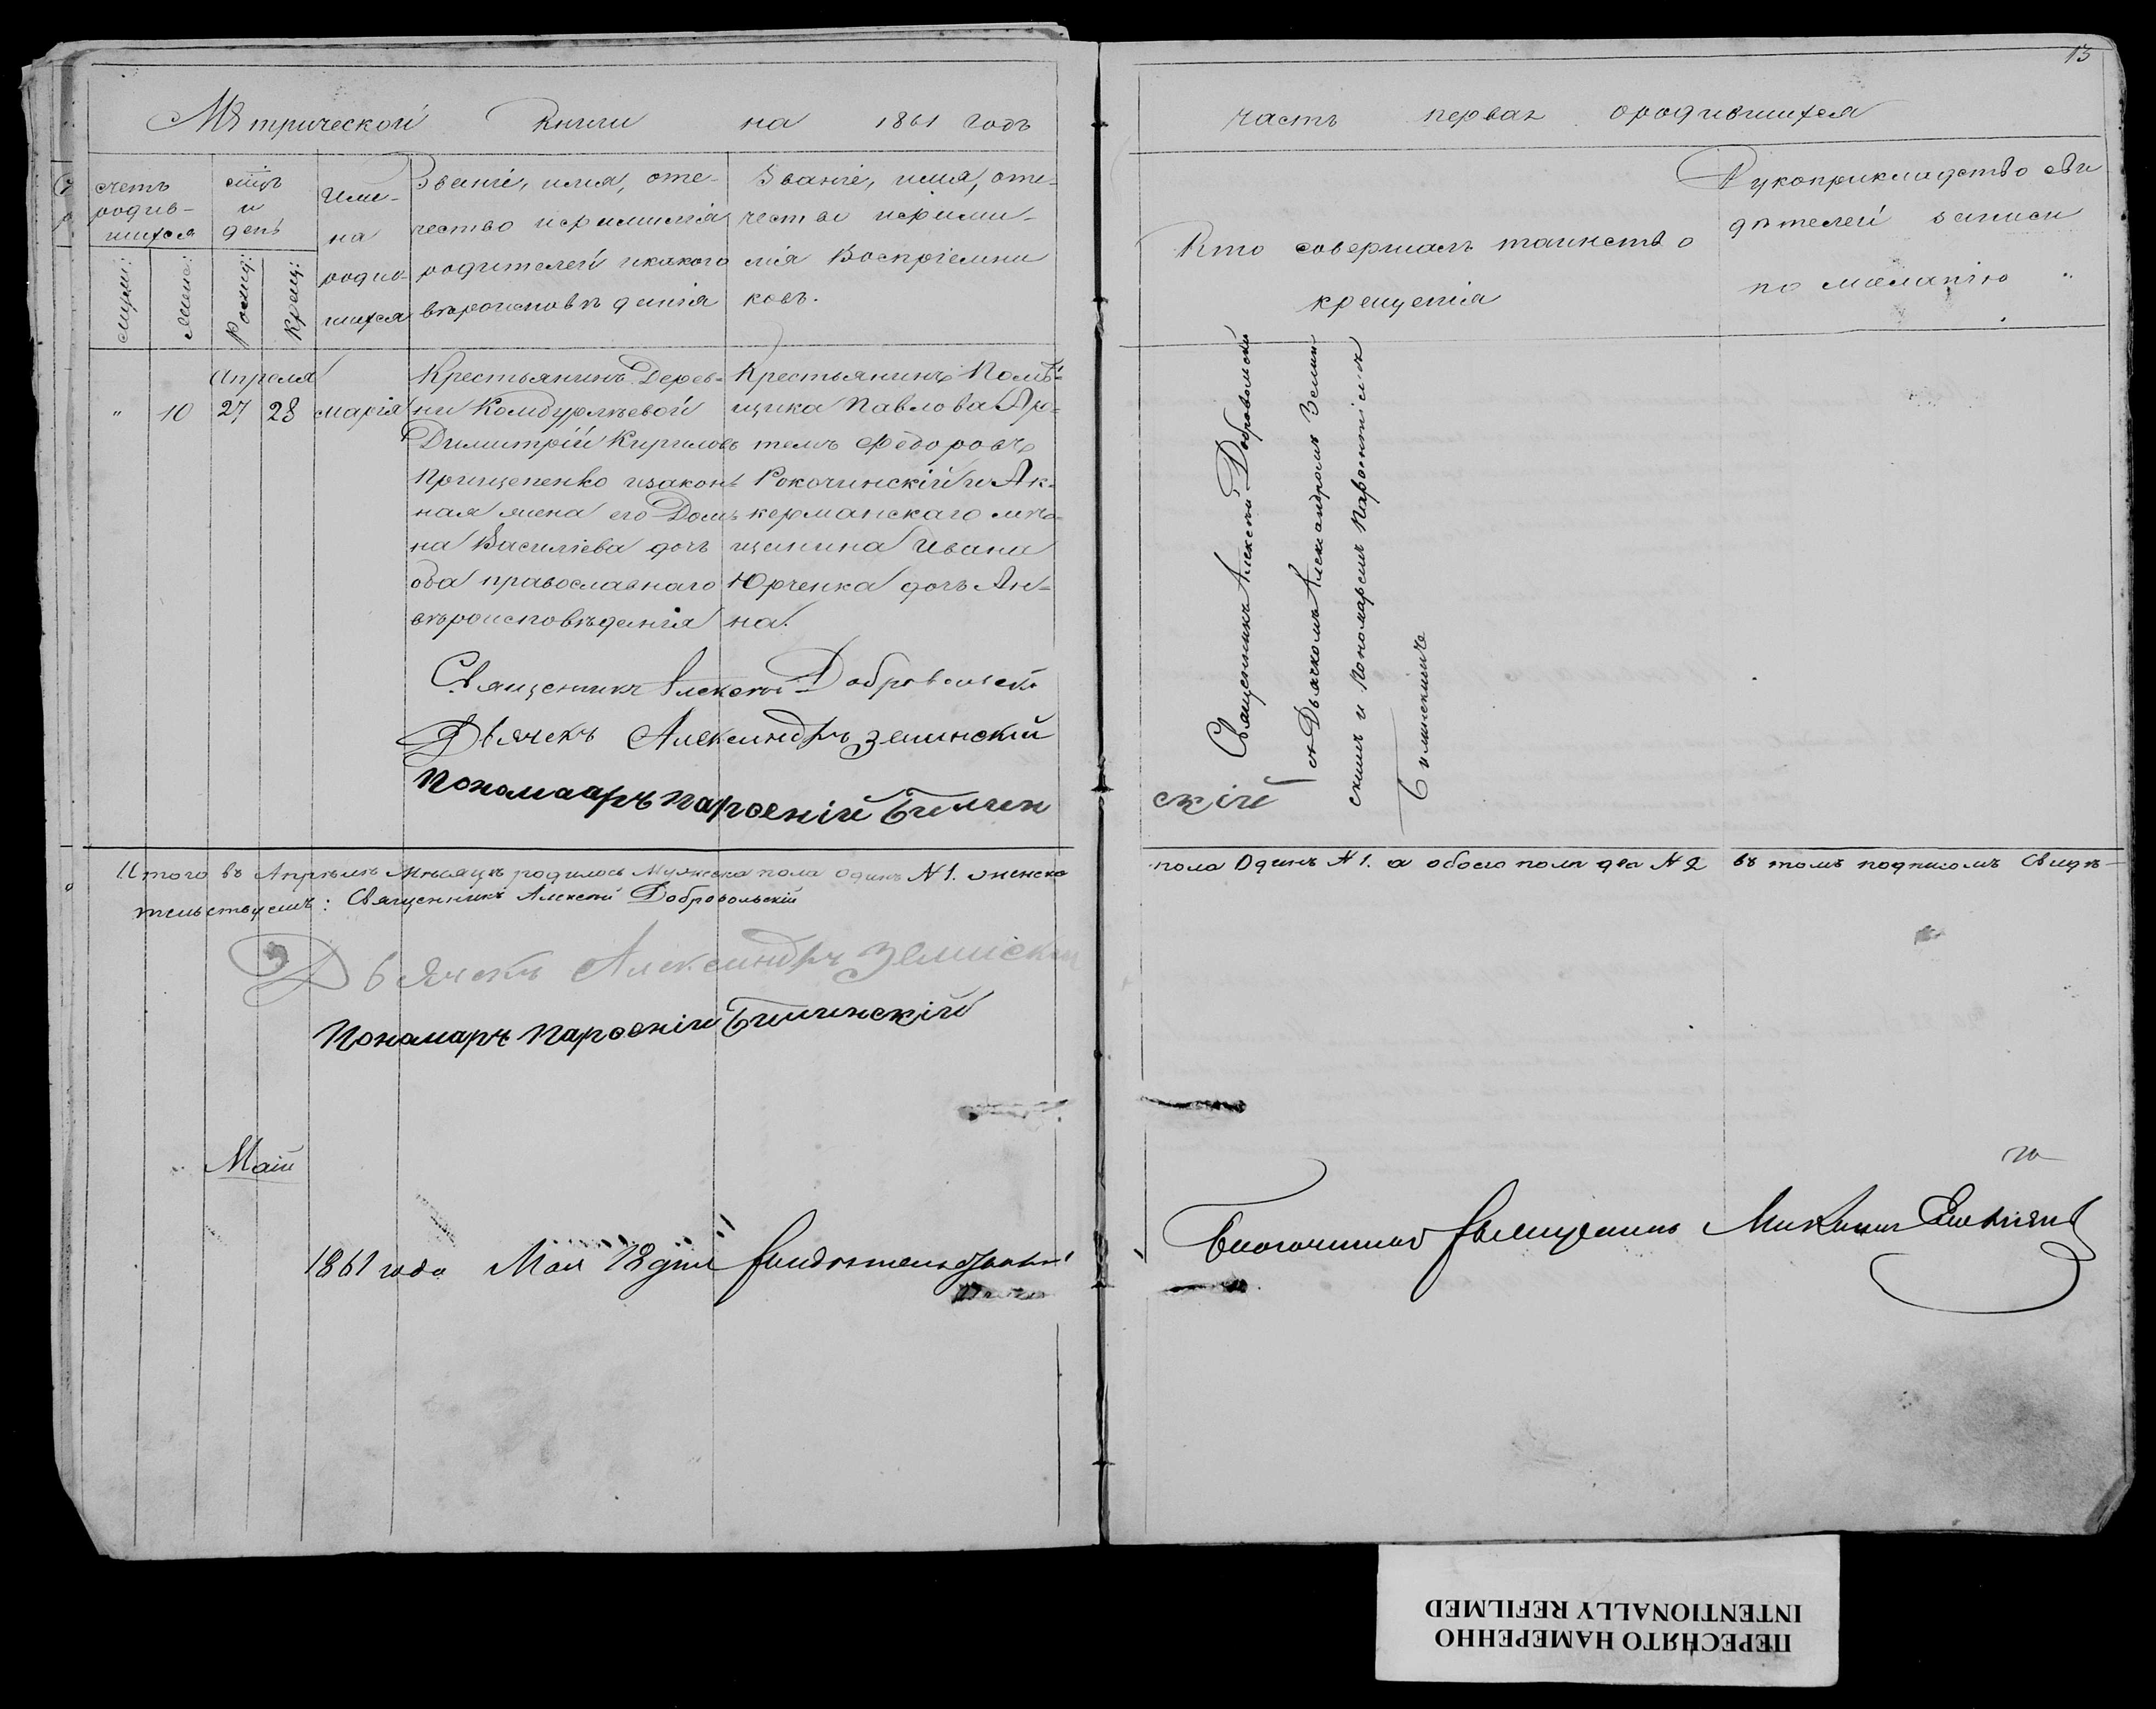 13
Мѣтрической Книги на 1861 годъ
часть первая ородившихся
счетъ родив-шихся
мцъ и день
Име-на родив-шихся
Званіе, имя, оте-
чество ифамилія
родителей икакого
вѣроисповѣданія
Званіе, имя, оте-
чество ифами-
лія Воспріемни
ковъ.
Кто совершалъ таинство
крещенія
Рукоприкладство сви
дѣтелей записи
по желанію
мущи:
женс:
Рожд:
Крещ:
Апреля
" 10 27 28 марія
Крестьянинъ Дерев-
ни Комдурлѣевой
Димитрій Кириловъ
Прищепенко изакон-
ная жена его Дом-
на Василіева дочь
оба православнаго
вѣроисповѣданія
Крестьянинъ Помѣ-
щика Павлова Ар-
темъ Федоровъ
Рокочинскій и Ак-
керманскаго мѣ-
щанина Ивана
Юрченка дочь Ан-
на.
Священникъ Алексей Добровольскій
Дьячекъ Александръ Земинскій
Пономаръ Парѳеній Билинскій
Священникъ Алексей Добровольскій
съ Дьячкомъ АлександромъЗемин
скимъ и Пономаремъ Парѳеніемъ
Билинскимъ
Итого въ Апрѣлѣ Мѣсяцѣ родилось Мужеска пола одинъ №1. женска пола Одинъ №1. а обоего пола два №2 въ томъ подписомъ Свидѣ-
тельствуемъ: Священникъ Алексей Добровольскій
Дьячекъ Александръ Земинскій
Пономаръ Парѳеній Билинскій
Май
1861 года Мая 18 дня Свидѣтельствовалъ
Благочинный Священникъ
ПЕРЕСНЯТО НАМЕРЕННО
INTENTIONALLY REFILMED